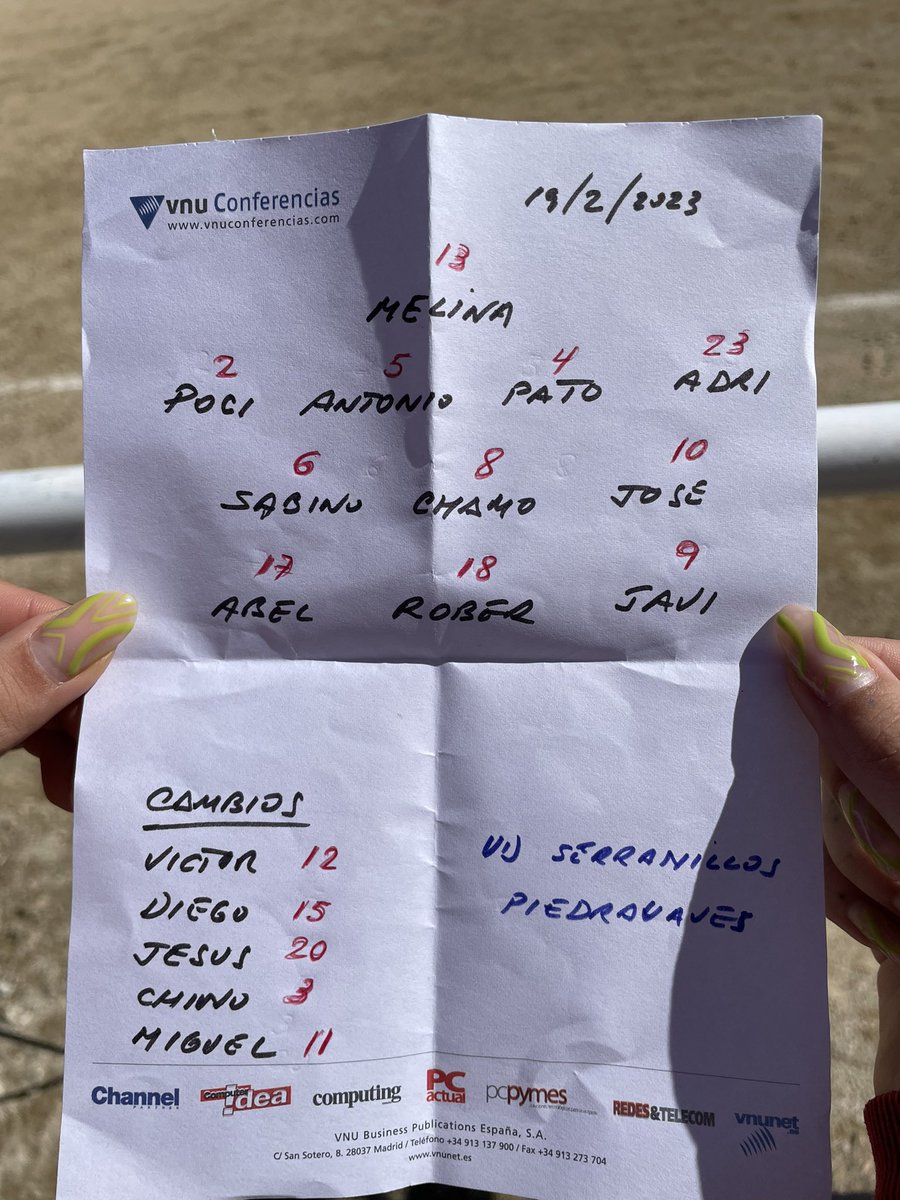 vnu Conferencias
www.vnuconferencias.com
19/2/2023
13
MELINA
2 5 4 23
POCI ANTONIO PATO ADRI
6 8 10
SABINO CHAMO JOSE
17 18 9
ABEL ROBER JAVI
CAMBIOS
VICTOR 12
DIEGO 15
JESUS 20
CHINO 3
MIGUEL 11
SERRANILLOS
PIEDRALAVES
Channel PARTNER computer idea computing PC actual pcpymes REDES&TELECOM vnunet.es
VNU Business Publications España, S.A.
C/ San Sotero, 8. 28037 Madrid / Teléfono +34 913 137 900 / Fax +34 913 273 704
www.vnunet.es